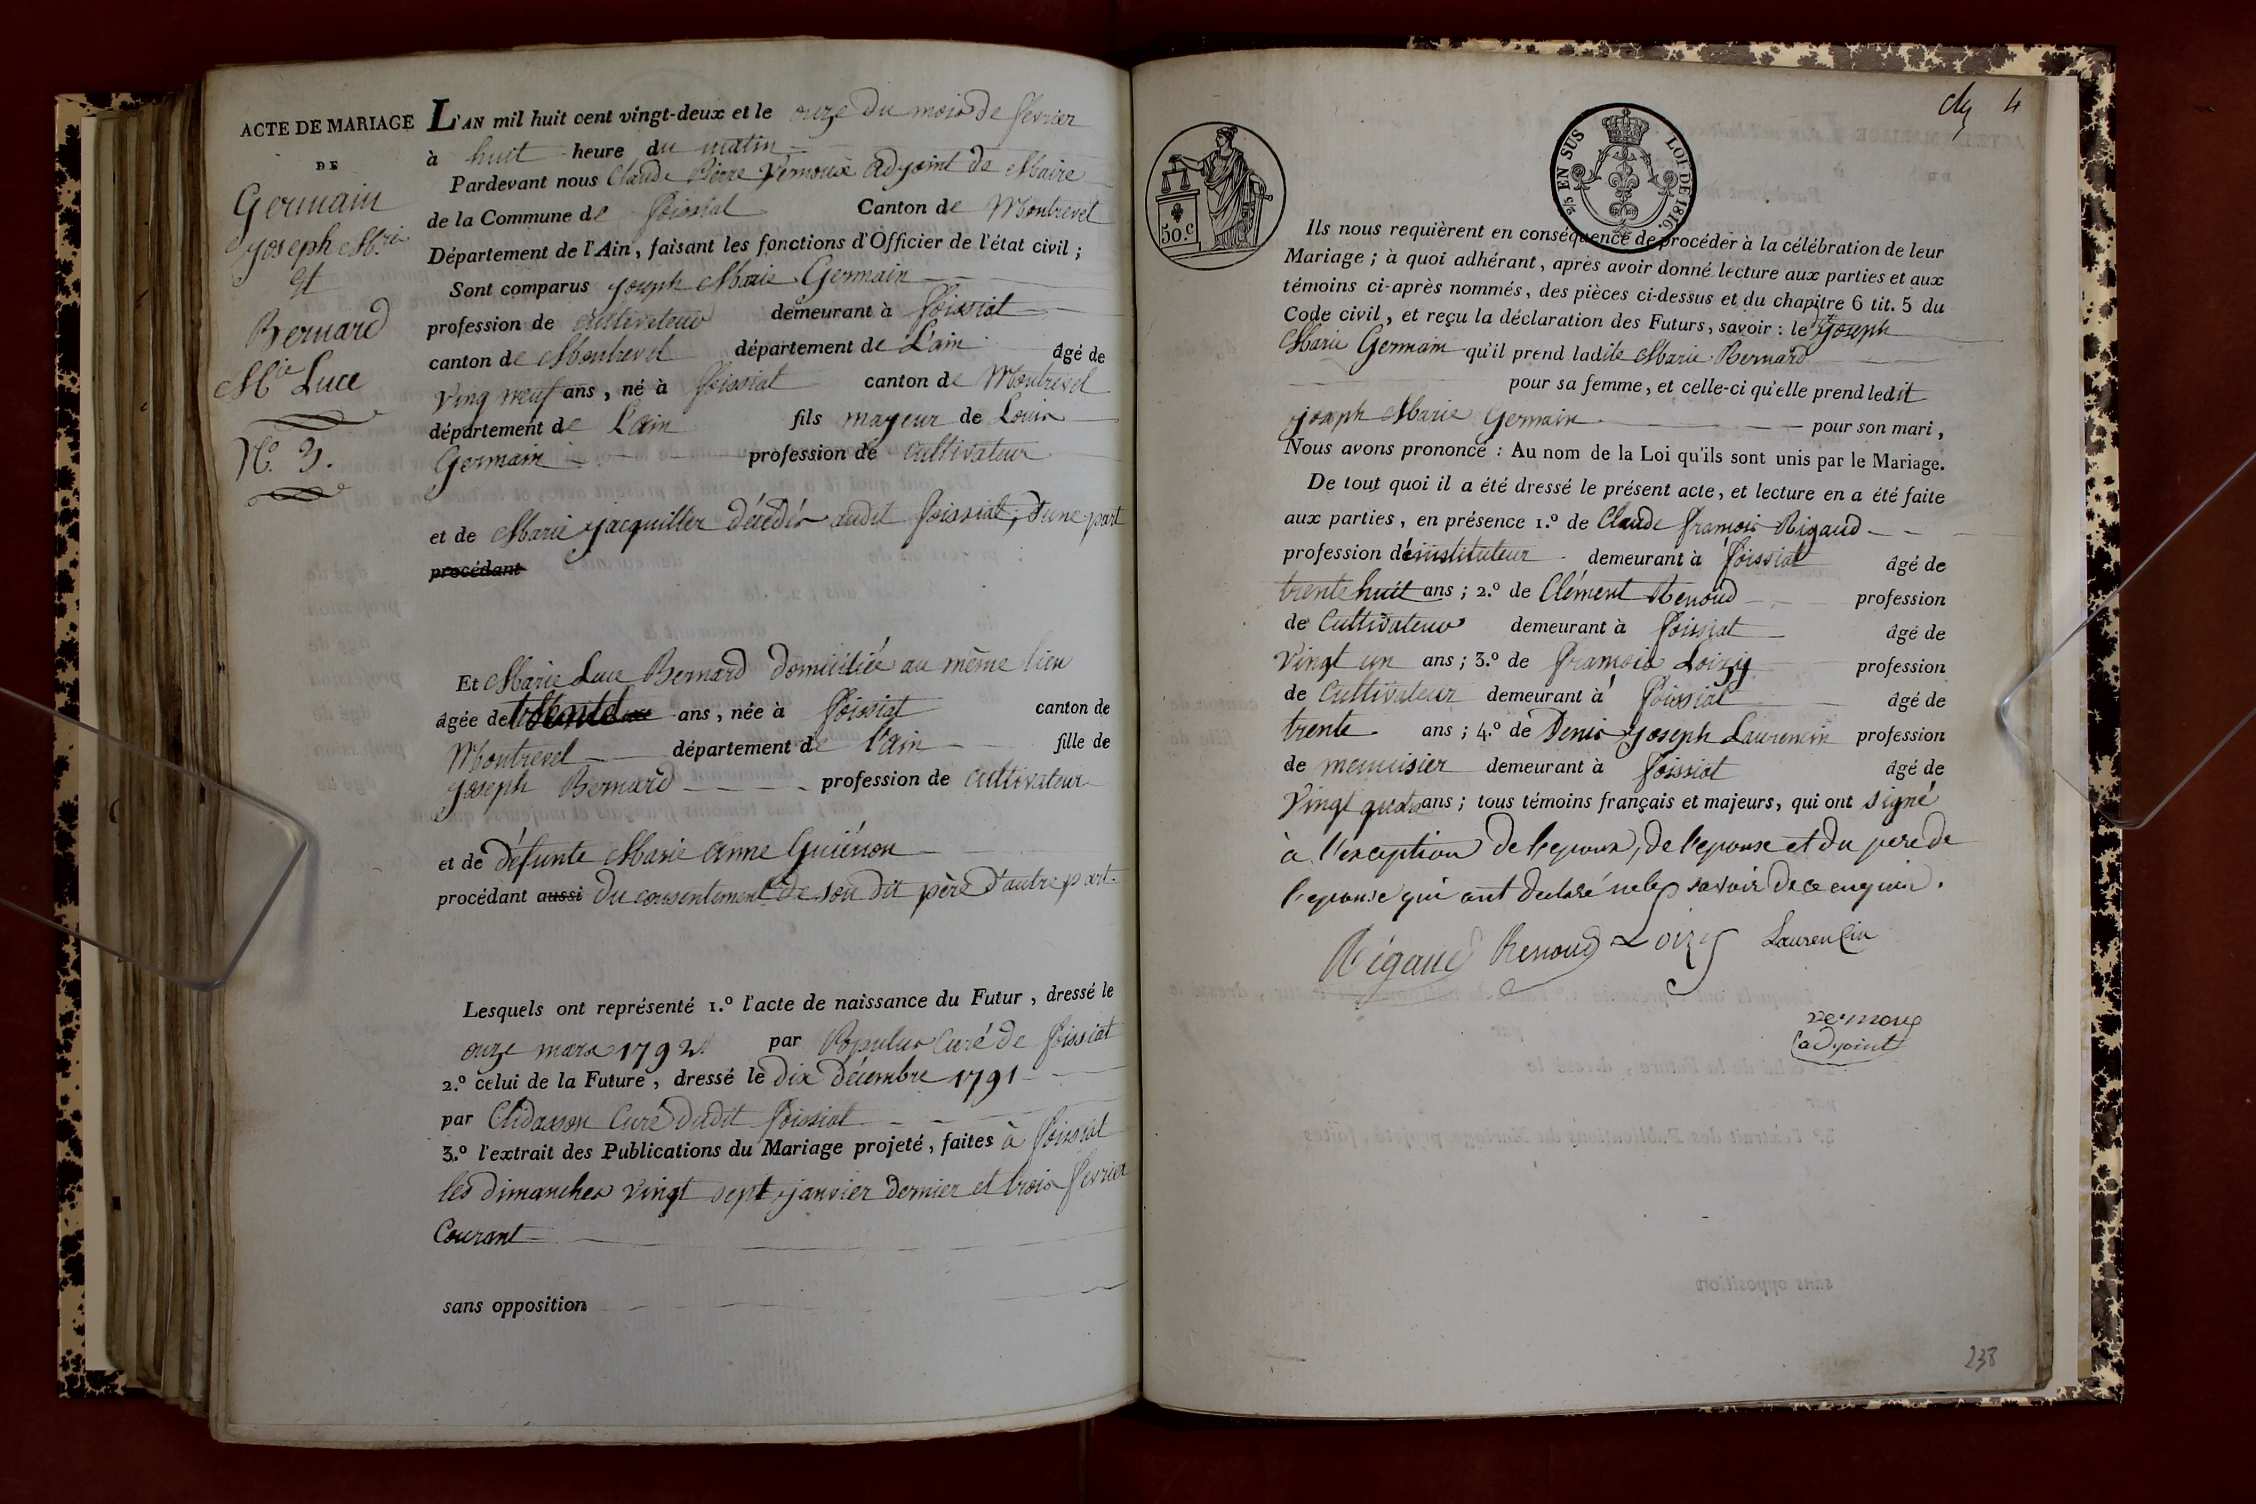 ACTE DE MARIAGE
DE
Germain
joseph M.rie
et
Bernard
M.ie Luce
N.o 3.
L'AN mil huit cent vingt-deux et le onze du mois de fevrier
à huit heure du matin
Pardevant nous Claude Pierre Vernoux adjoint de Maire
de la Commune de foissiat Canton de Montrevel
Département de l'Ain, faisant les fonctions d'Officier de l'état civil ;
Sont comparus joseph Marie Germain
profession de cultivateur demeurant à foissiat
canton de Montrevel département de L'ain âgé de
Ving neuf ans, né à foissiat canton de Montrevel
département de L'ain fils mayeur de Louis
Germain profession de cultivateur
et de Marie jacquiller décédés audit foissiat, d'une part
procédant
Et Marie Luce Bernard domiciliée au même lieu
âgée de trente ans, née à foissiat canton de
Montrevel département de l'ain fille de
joseph Bernard profession de cultivateur
et de défunte Marie Anne Guiénon
procédant aussi du consentement de son dit père d'autre part.
Lesquels ont représenté 1.o l'acte de naissance du Futur, dressé le
onze mars 1792 par Populus Curé de foissiat
2.o celui de la Future, dressé le dix décembre 1791
par Curé dudit foissiat
3.o l'extrait des Publications du Mariage projeté, faites à foissiat
les dimanches vingt sept janvier dernier et trois fevrier
Courant
sans opposition
4
50.c
2/5 EN SUS LOI DE 1816.
Ils nous requièrent en conséquence de procéder à la célébration de leur
Mariage ; à quoi adhérant, après avoir donné lecture aux parties et aux
témoins ci-après nommés, des pièces ci-dessus et du chapitre 6 tit. 5 du
Code civil, et reçu la déclaration des Futurs, savoir : le dt joseph
Marie Germain qu'il prend ladite Marie Bernard
pour sa femme, et celle-ci qu'elle prend ledit
joseph Marie Germain pour son mari,
Nous avons prononcé : Au nom de la Loi qu'ils sont unis par le Mariage.
De tout quoi il a été dressé le présent acte, et lecture en a été faite
aux parties, en présence 1.o de Claude françois Rigaud
profession d'instituteur demeurant à foissiat âgé de
trente huit ans ; 2.o de Clément Renoud profession
de Cultivateur demeurant à foissiat âgé de
Vingt un ans ; 3.o de françois Loizy profession
de Cultivateur demeurant à foissiat âgé de
trente ans ; 4.o de Denis joseph Laurencin profession
de menuisier demeurant à foissiat âgé de
Vingt quatre ans ; tous témoins français et majeurs, qui ont signé
à l'exception de l'epoux, de l'epouse et du pere de
l'epouse qui ont declaré ne le savoir de ce enquis.
Rigaud Renoud Loizy Laurencin
vernoux
adjoint
238